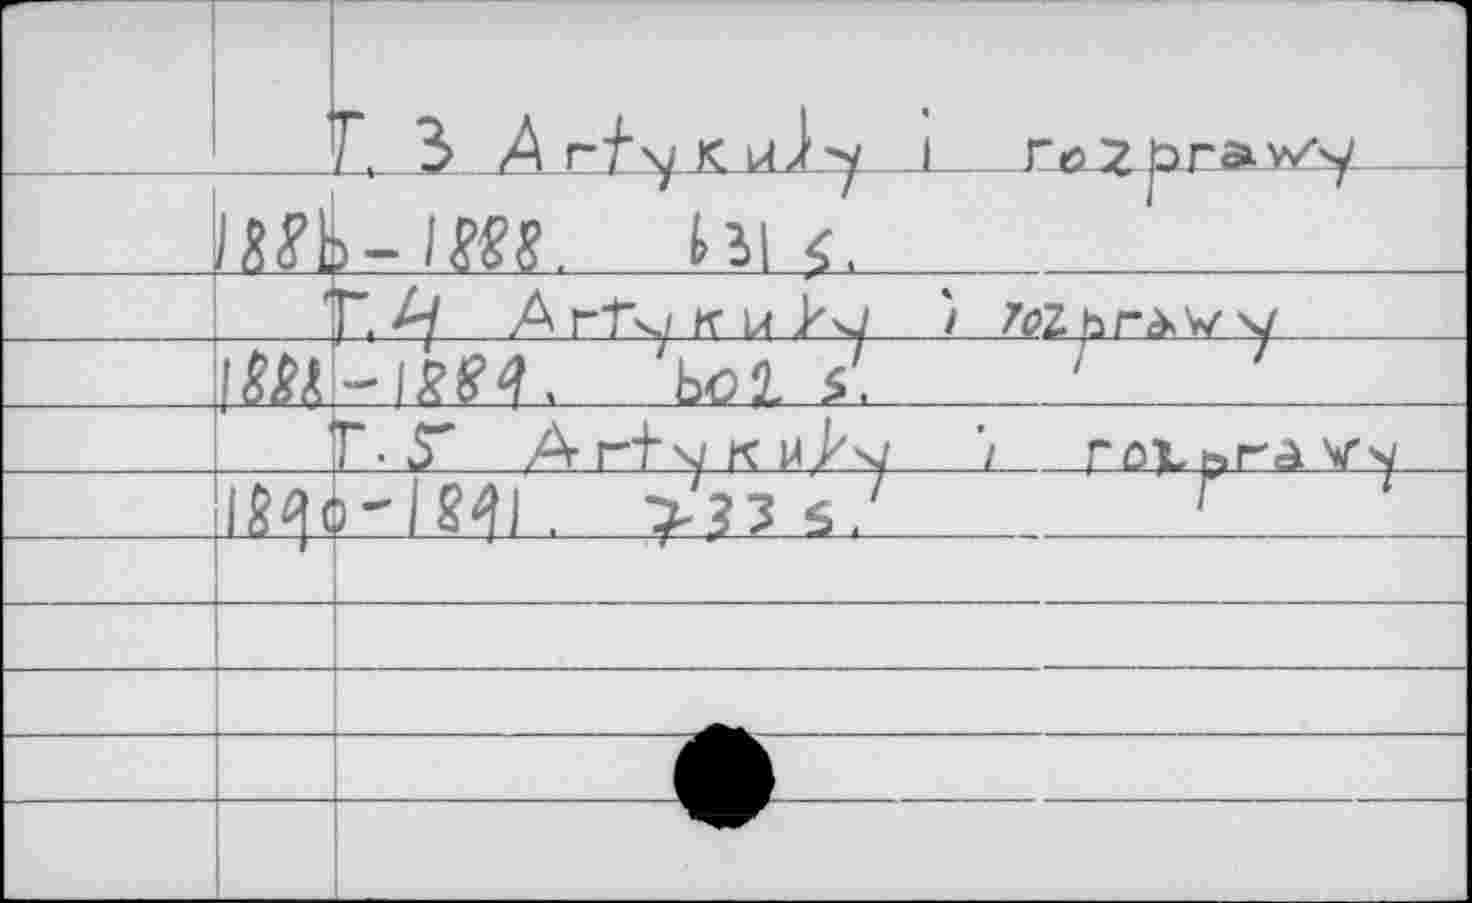 T. 3 Artykuły i rozprawy
1886-1888. 631 s.
T. 4 Artykuły i rozprawy
1888-1889. 602 s.
T. 5 Artykuły i rozprawy
1890-1891. 733 s.